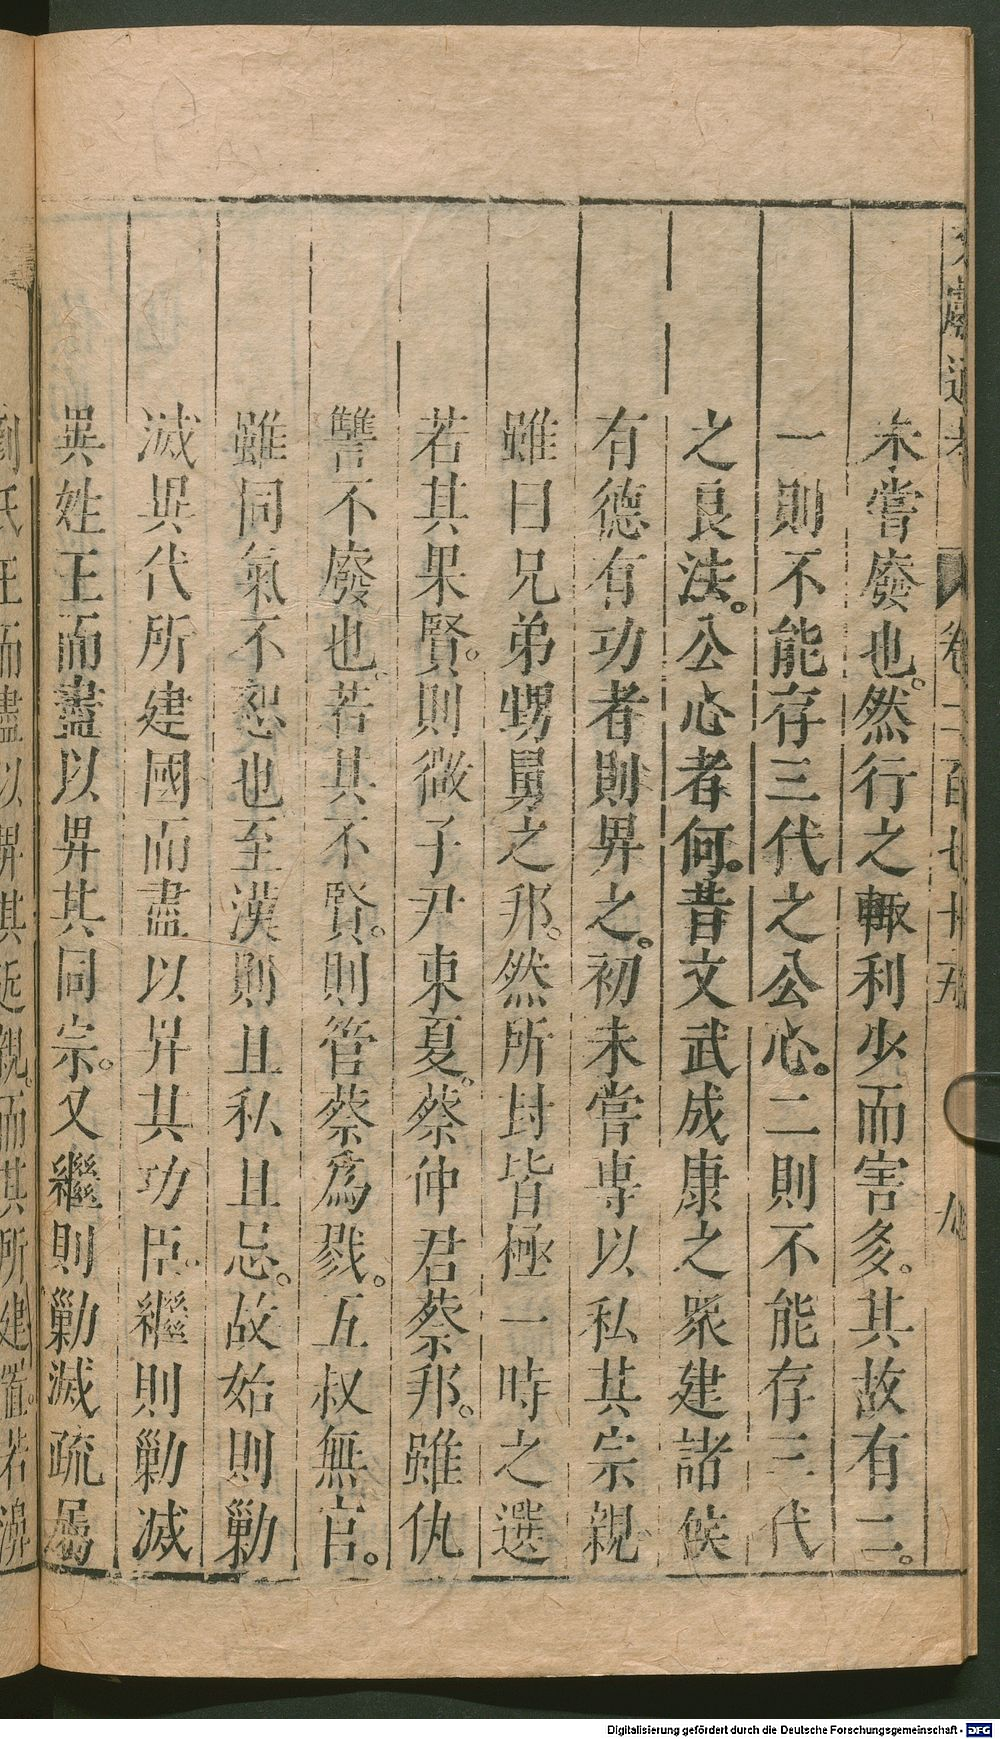 文獻通考 卷二百七十五 九
未嘗廢也。然行之輙利少而害多。其故有二。
一則不能存三代之公心。二則不能存三代
之良法。公心者何。昔文武成康之衆建諸侯
有德有功者則畀之。初未嘗專以私其宗親
雖曰兄弟甥舅之邦。然所封皆極一時之選
若其果賢。則微子尹東夏。蔡仲君蔡邦。雖仇
讐不廢也。若其不賢。則管蔡爲戮。五叔無官。
雖同氣不恕也至漢則且私且忌。故始則勦
滅異代所建國而盡以畀其功臣。繼則勦滅
異姓王而盡以畀其同宗。又繼則勦滅疏屬
劉氏王而盡以畀其近親。而其所建置。若
Digitalisierung gefördert durch die Deutsche Forschungsgemeinschaft - DFG